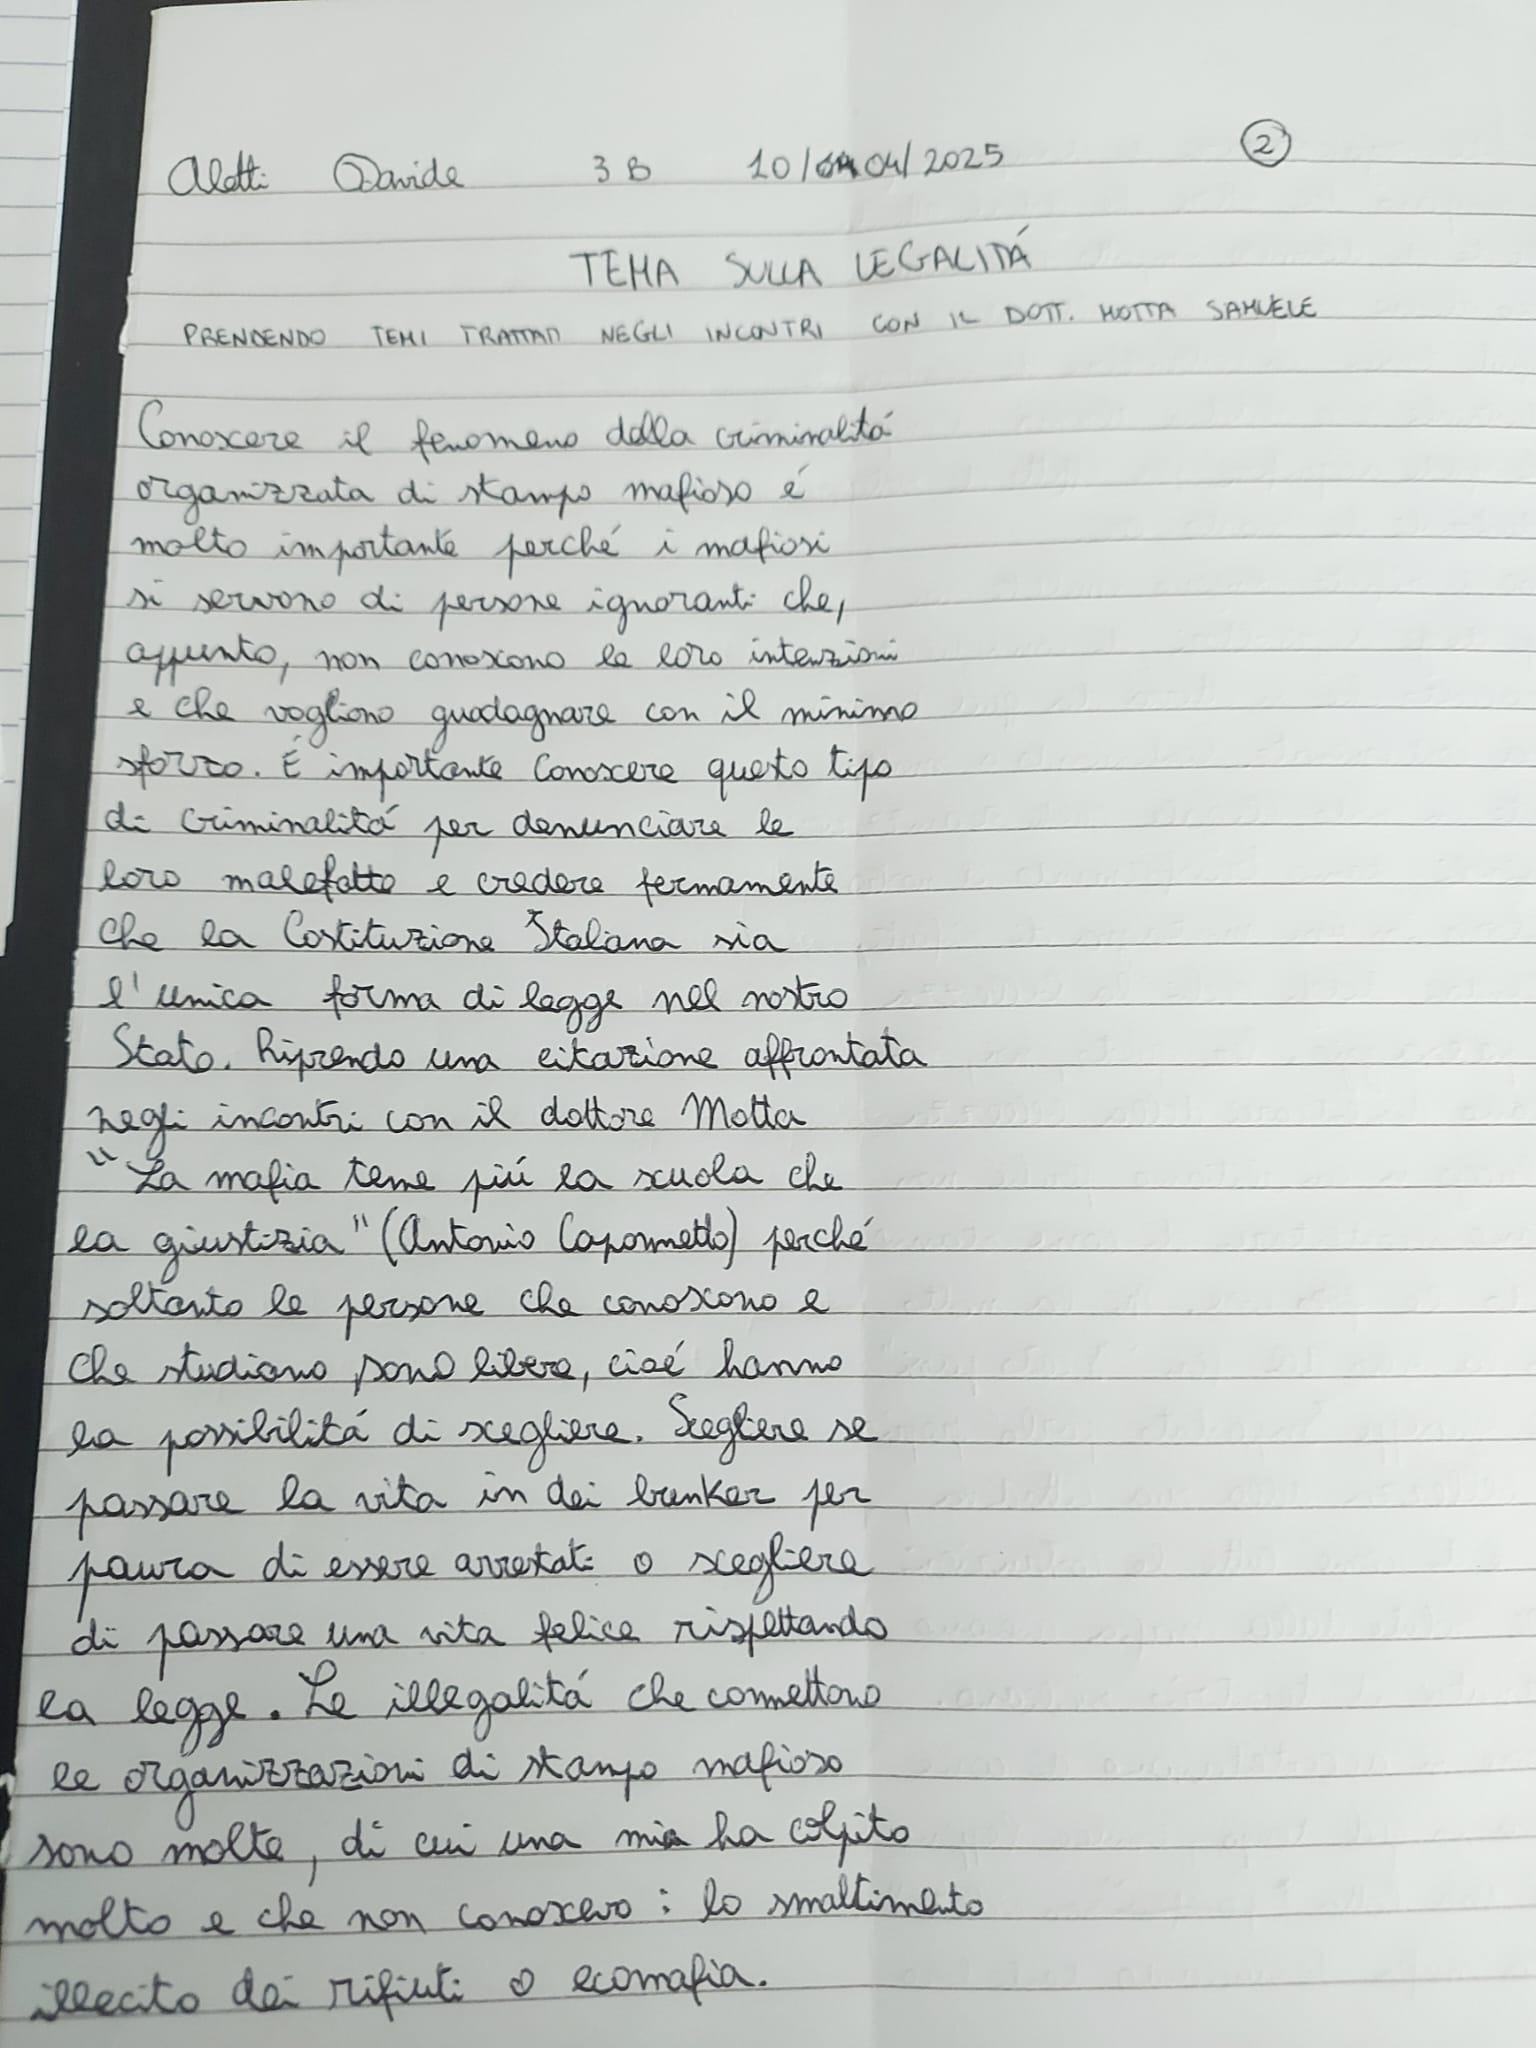 Aletti Davide 3 B 10/04/2025 2
TEMA SULLA LEGALITÁ
PRENDENDO TEMI TRATTATI NEGLI INCONTRI CON IL DOTT. MOTTA SAMUELE
Conoscere il fenomeno della criminalitá
organizzata di stampo mafioso é
molto importante perché i mafiosi
si servono di persone ignoranti che,
appunto, non conoscono le loro intenzioni
e che vogliono guadagnare con il minimo
sforzo. É importante conoscere questo tipo
di criminalitá per denunciare le
loro malefatte e credere fermamente
che la Costituzione Italiana sia
l'unica forma di legge nel nostro
Stato. Riprendo una citazione affrontata
negli incontri con il dottore Motta
"La mafia teme piú la scuola che
la giustizia" (Antonio Caponnetto) perché
soltanto le persone che conoscono e
che studiano sono libere, cioé hanno
la possibilitá di scegliere. Scegliere se
passare la vita in dei bunker per
paura di essere arrestati o scegliere
di passare una vita felice rispettando
la legge. Le illegalitá che commettono
le organizzazioni di stampo mafioso
sono molte, di cui una mia ha colpito
molto e che non conoscevo: lo smaltimento
illecito dei rifiuti o ecomafia.